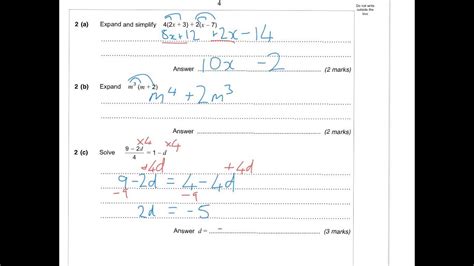 4
Do not write
outside the
box
2 (a) Expand and simplify 4(2x + 3) + 2(x – 7)
8x+12 +2x-14
10x -2
Answer (2 marks)
2 (b) Expand m³ (m + 2)
m⁴ + 2m³
Answer (2 marks)
2 (c) Solve (9 – 2d)/4 = 1 – d
×4 ×4
+4d +4d
9-2d = 4-4d
-9 -9
2d = -5
Answer d = (3 marks)